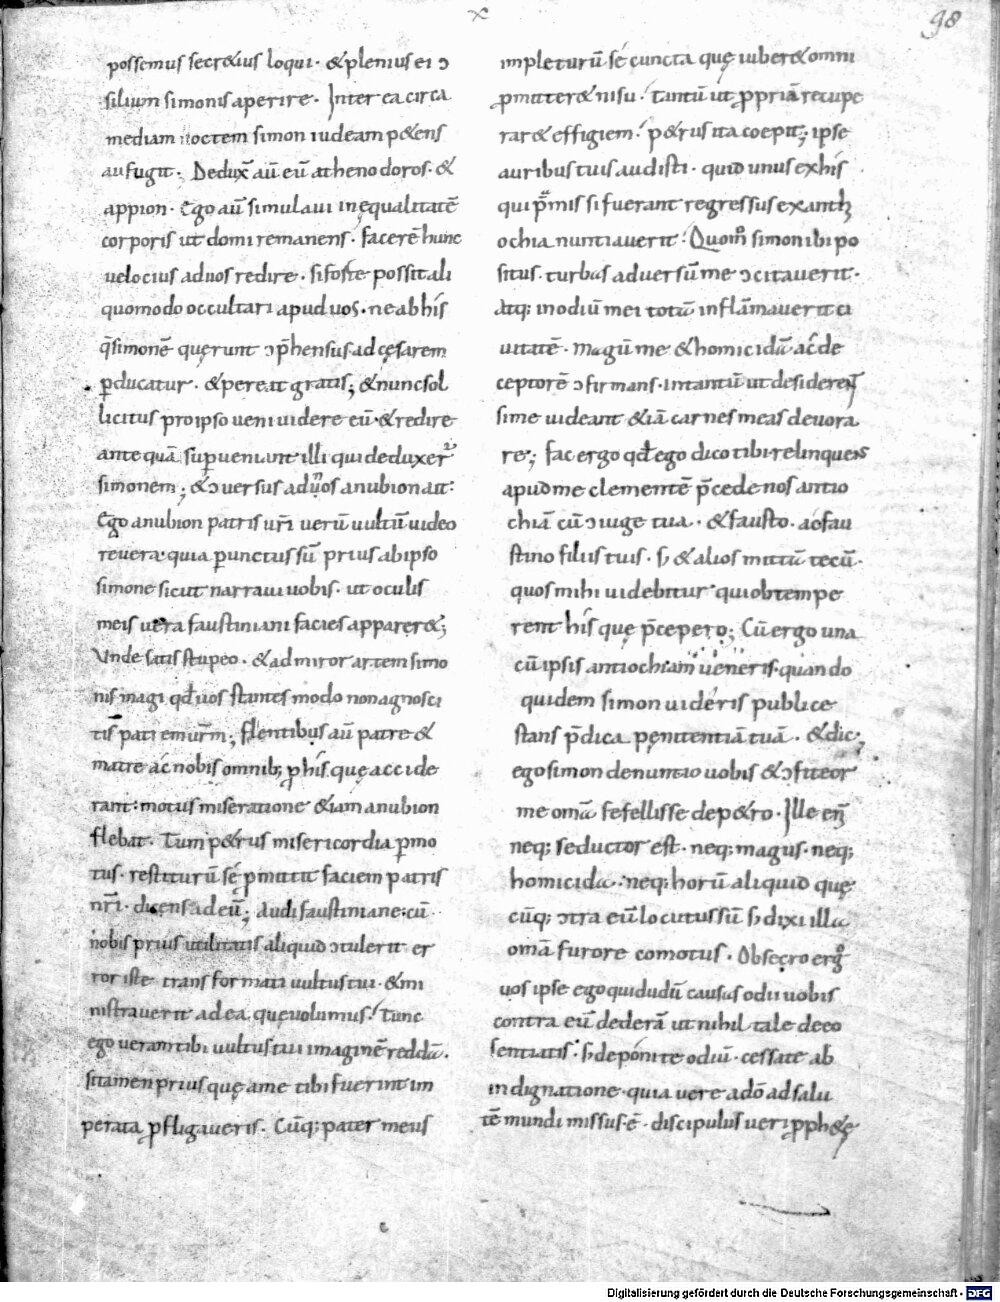 x
98
possemus secr&ius loqui · & plenius ei ɔ
silium simonis aperire · Inter ea circa
mediam noctem simon iudeam p&ens
aufugit · Dedux̄ aū eū athenodoros · &
appion · Ego aū simulaui inęqualitatē
corporis ut domi remanens · facerē hunc
uelocius ad uos redire · si forte possit ali
quomodo occultari apud uos · ne ab his
q̄ simonē quęrunt ɔp̄hensus ad cęsarem
ꝑducatur · & pereat gratis; & nunc sol
licitus pro ipso ueni uidere eū · & redire
ante quā suꝑueniant illi qui deduxer̄
simonem; & ɔuersus ad uos anubion ait:
Ego anubion patris ur̄i uerū uultū uideo
reuera · quia ꝑunctus sū prius ab ipso
simone sicut narraui uobis · ut oculis
meis uera faustiniani facies apparer&;
Unde satis stupeo · & admiror artem simo
nis magi qđ uos stantes modo non agnosci
tis patrem ur̄m; flentibus aū patre &
matre ac nobis omnib; ꝓ his quę accide
rant: motus miseratione & iam anubion
flebat · Tum p&rus misericordia ꝑmo
tus · restiturū sé ꝓmittit faciem patris
nr̄i · dicens ad eū; Audi faustiniane: cū
nobis prius utilitatis aliquid ɔtulerit er
ror iste transformati uultus tui · & mi
nistrauerit ad ea quę uolumus! Tunc
ego ueram tibi uultus tui imaginē reddā ·
si tamen prius quę a me tibi fuerint im
perata ꝓfligaueris · Cūq; pater meus
impleturū sé cuncta quę iuber& omni
ꝓmitter& nisu · tantū ut ꝓpriā recupe
rar& effigiem! p&rus ita coepit; ipse
auribus tuis audisti · quid unus ex his
qui p̄missi fuerant regressus ex anth
ochia nuntiauerit · Quom̊ simon ibi po
situs · turbas aduersū me ɔcitauerit ·
Atq; in odiū mei totā inflāmauerit ci
uitatē · Magū me & homicidā ac de
ceptorē ɔfirmans · intantū ut desiderent
si me uideant & iā carnes meas deuora
re; fac ergo qđ ego dico tibi relinquens
apud me clementē p̄cede nos antio
chiā cū ɔiuge tua · & fausto · ac fau
stino filiis tuis · s; & alios mittā tecū ·
quos mihi uidebitur qui obtempe
rent his quę p̄cepero; Cū ergo una
cū ipsis antiochiam ueneris · quando
quidem simon uideris publice
stans p̄dica pęnitentiā tuā · & dic;
ego simon denuntio uobis & ɔfiteor
me omā fefellisse de p&ro · Ille en̄
neq; seductor est · neq; magus · neq;
homicida · neq; horū aliquid quę
cūq; ɔtra eū locutus sū s; dixi illa
omā furore comotus · Obsecro erg̊
uos ipse ego qui dudū causas odii uobis
contra eū dederā ut nihil tale de eo
sentiatis · s; deponite odiū · cessate ab
indignatione · quia uere a dō ad salu
tē mundi missus · ē · discipulus ueri ꝓph&ę
Digitalisierung gefördert durch die Deutsche Forschungsgemeinschaft - DFG